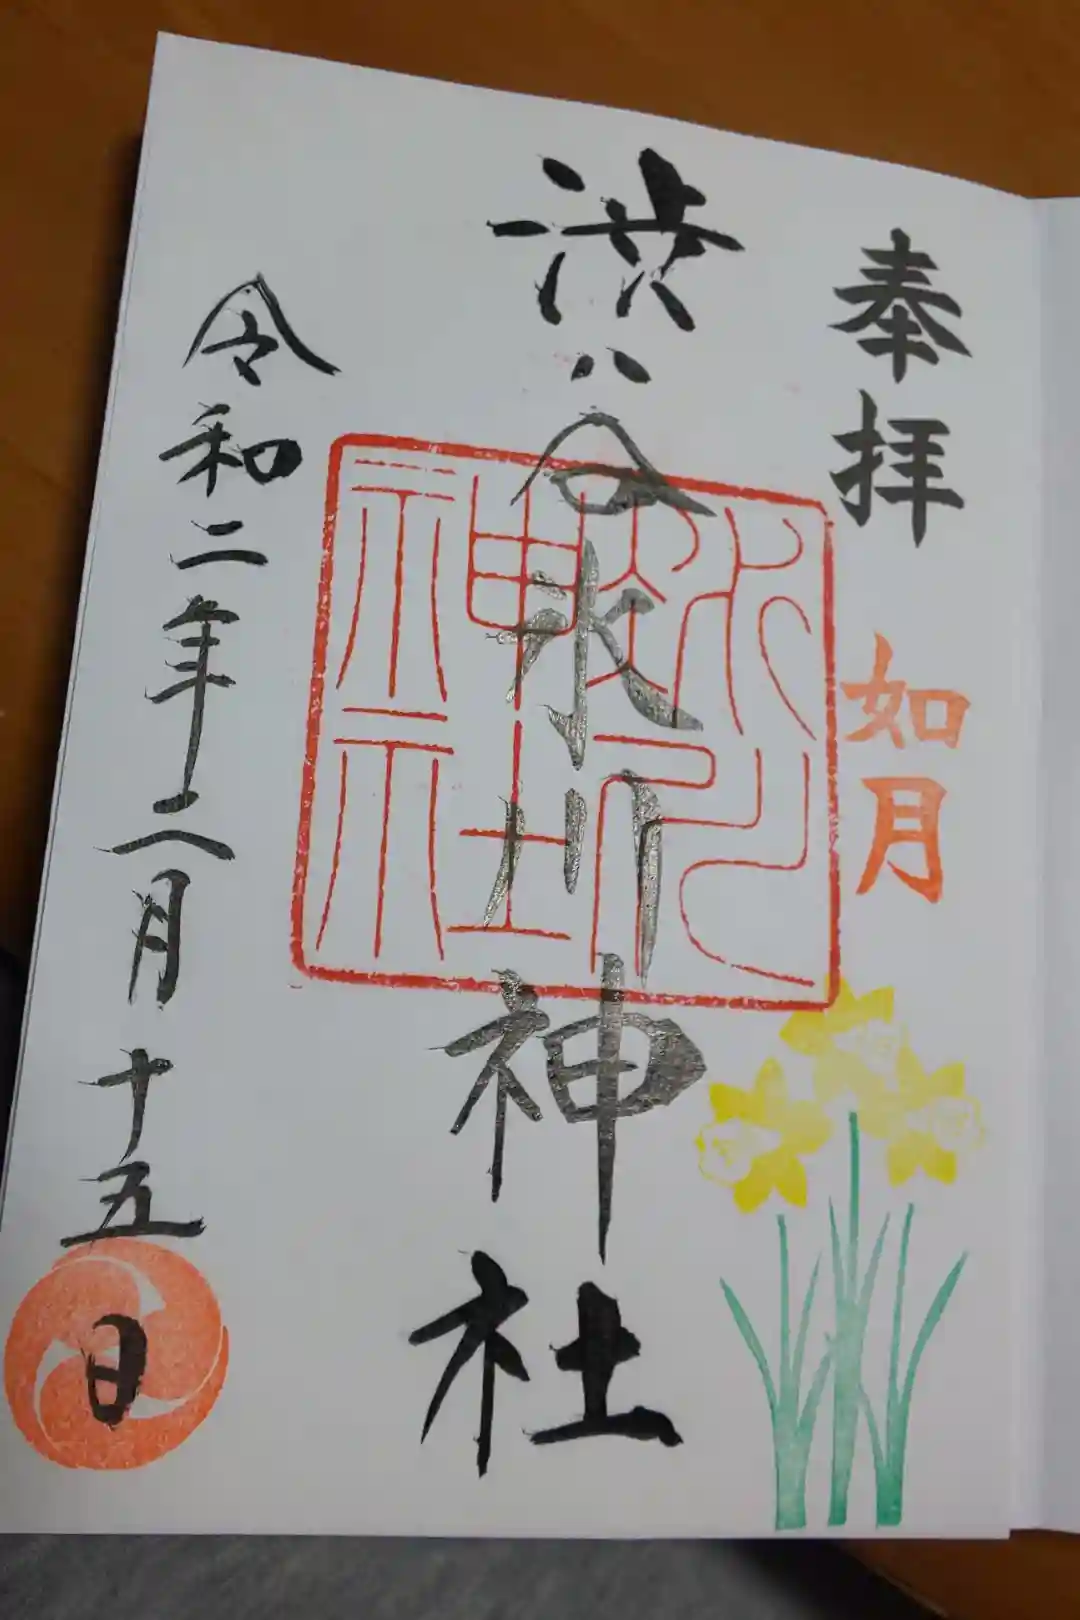 奉拝
如月
渋谷氷川神社
令和二年二月十五日